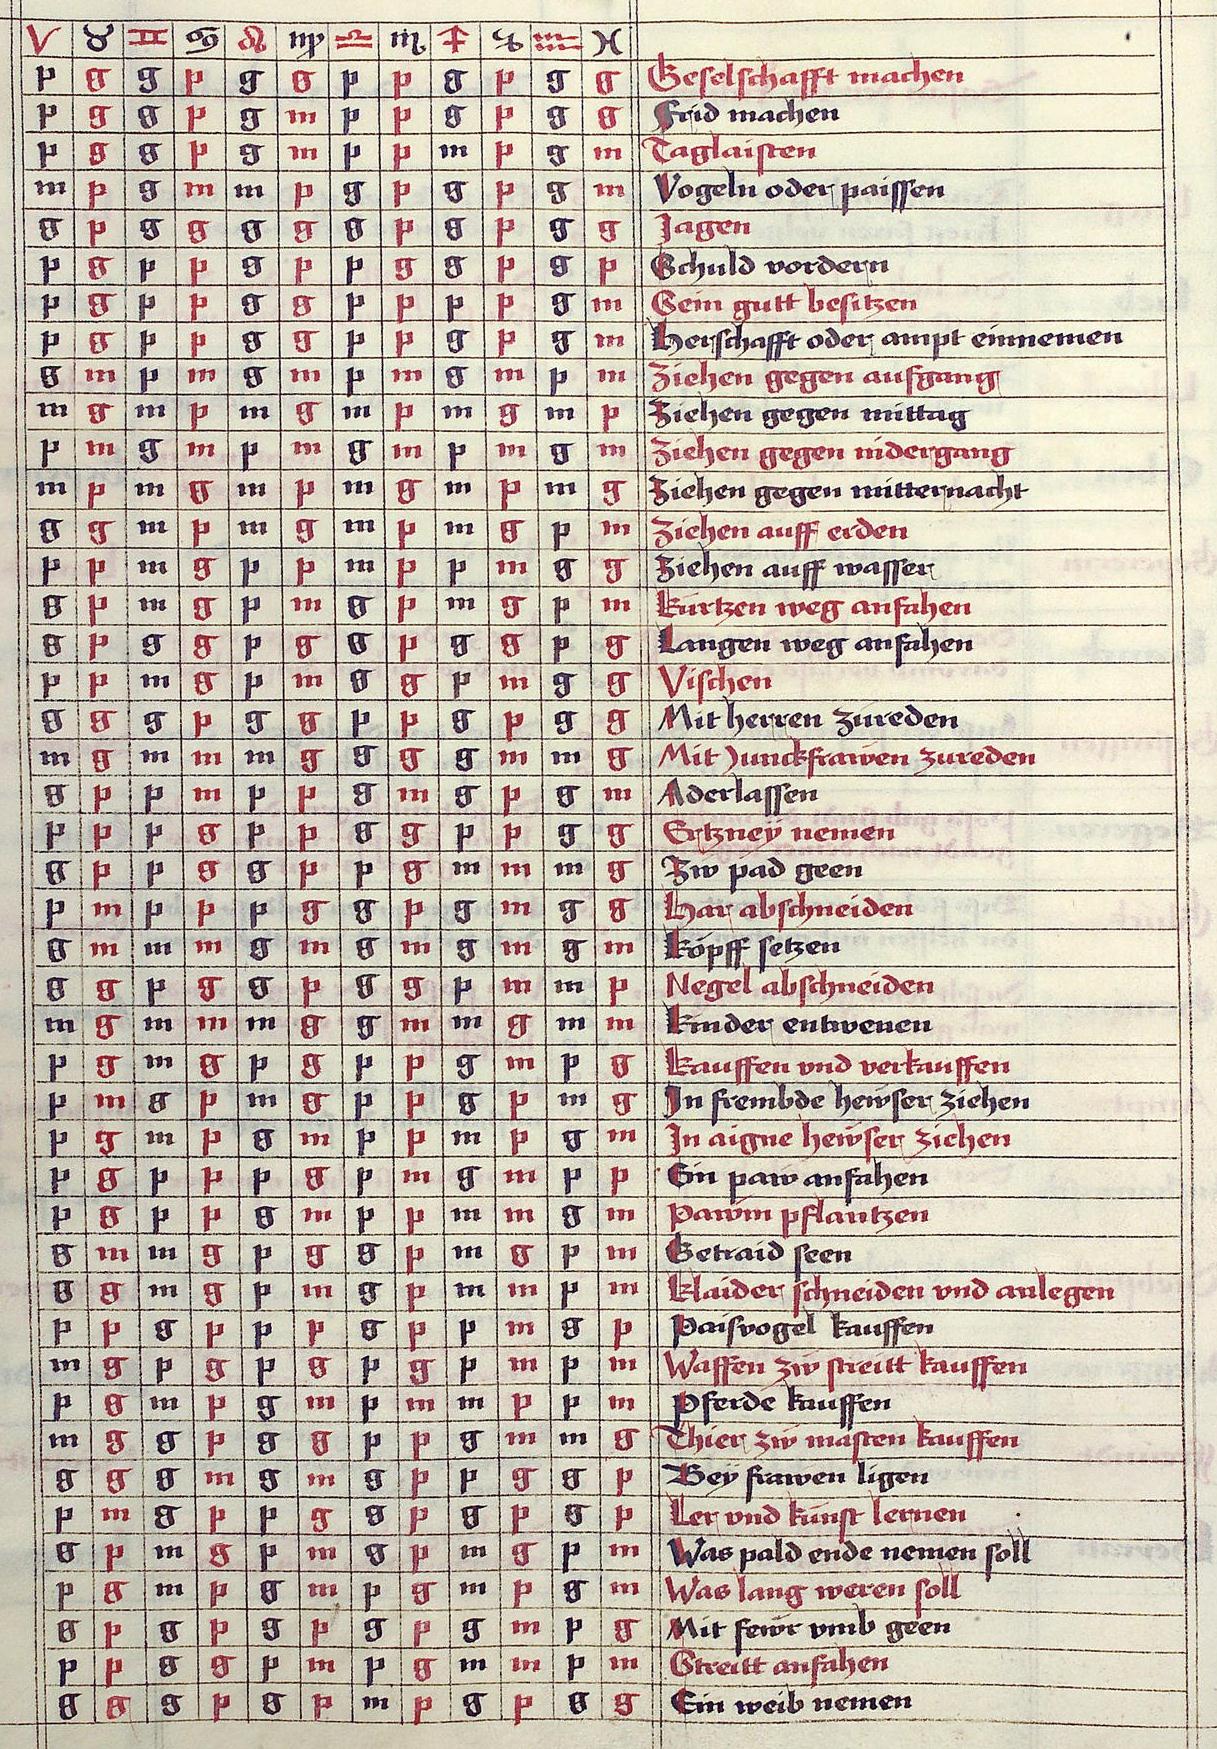 ♈ ♉ ♊ ♋ ♌ ♍ ♎ ♏ ♐ ♑ ♒ ♓
p g g p g g p p g p g g Geselschafft machen
p g g p g m p p g p g g Frid machen
p g g p g m p p m p g m Taglaisten
m p g m m p g p g p g m Vogeln oder paissen
g p g g g g g p g p g g Jagen
p g p p g p p g g p g p Schuld vordern
p g p p g g p p p p g m Sein gutt besitzen
p g p p g g p p g p g m Herschafft oder ampt einnemen
g m p m g m p m g m p m Ziehen gegen aufgang
m g m p m g m p m g m p Ziehen gegen mittag
p m g m p m g m p m g m Ziehen gegen nidergang
m p m g m p m g m p m g Ziehen gegen mitternacht
g g m p m g m p m g p m Ziehen auff erden
p p m g p p m p p m g g Ziehen auff wasser
g p m g p m g p m g p m kurtzen weg anfahen
g p g g p g g p g g p g Langen weg anfahen
p p m g p m g g p m g g Vischen
g g g p g g p p g p g g Mit herren zureden
m g m m m g g g g m m g Mit Junckfrawen zureden
g p p m p p g m g p g m Aderlassen
p p p g p p g g p p g g Ertzney nemen
g p p g g p p g m m m g Zw pad geen
p m p p p g g p g m g g Har abschneiden
g m m m g m g m g m g m köpff setzen
g g p g g p g g p m m p Negel abschneiden
m g m m m g g m m g m m kinder entwenen
p g m g p g p p g m p g kauffen vnd verkauffen
p m g p m g p p g p m g In frembde hewser ziehen
p g m p g m p p m p g m In aigne hewser ziehen
p g p p p g p m g m p p Ein paw anfahen
p g p p g m p p m m g m Pawm pflantzen
g m m g p g g p m g p m Getraid seen
g g m g p m g p m m p m klaider schneiden vnd anlegen
p p g p p p g p p m g p Paisvogel kauffen
m g p g p g p g p m p m Waffen zw streitt kauffen
p g m p g m p m m p p m Pferde kauffen
m g g p g g p p g m m g Thier zw masten kauffen
g g g m g m g p p g g p Bey frawen ligen
p m g p p g g p g p g p Ler vnd kunst lernen
g p m g p m g p m g p m Was pald ende nemen soll
p g m p g m p g m p g m Was lang weren soll
g p g p g p g p g m p g Mit fewr vmb geen
p p g g p m p g m m p m Streitt anfahen
g g g p g p m p g p g g Ein weib nemen